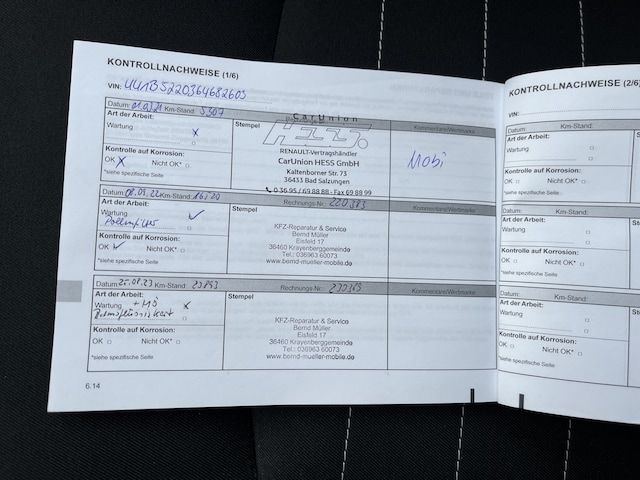 KONTROLLNACHWEISE (1/6)
VIN: UU1B5220364682603
Datum: 01.03.21 Km-Stand: 5307
Art der Arbeit:
Wartung x
Stempel
CarUnion
Hess
RENAULT-Vertragshändler
CarUnion HESS GmbH
Kaltenborner Str. 73
36433 Bad Salzungen
0 36 95 / 69 88 88 - Fax 69 88 99
Kommentare/Vertmarke
Mobi
Kontrolle auf Korrosion:
OK x Nicht OK*
*siehe spezifische Seite
Km-Stand: Rechnungs-Nr.: 220383
Kommentare/Wertmarke
Art der Arbeit:
Wartung ✓
Pollenfilter
Stempel
KFZ-Reparatur & Service
Bernd Müller
Eisfeld 17
36460 Krayenberggemeinde
Tel.: 036963 60073
www.bernd-mueller-mobile.de
Kontrolle auf Korrosion:
OK ✓ Nicht OK*
*siehe spezifische Seite
Datum: 25.08.23 Km-Stand: 23893 Rechnungs-Nr.: 230365
Kommentare/Wertmarke
Art der Arbeit:
Wartung + MÖ x
Bremsflüssigkeit
Stempel
KFZ-Reparatur & Service
Bernd Müller
Eisfeld 17
36460 Krayenberggemeinde
Tel.: 036963 60073
www.bernd-mueller-mobile.de
Kontrolle auf Korrosion:
OK Nicht OK*
*siehe spezifische Seite
6.14
KONTROLLNACHWEISE (2/6)
VIN:
Datum: Km-Stand:
Art der Arbeit:
Wartung
Kontrolle auf Korrosion:
OK Nicht OK*
*siehe spezifische Seite
Datum: Km-Stand:
Art der Arbeit:
Wartung
Kontrolle auf Korrosion:
OK Nicht OK*
*siehe spezifische Seite
Datum: Km-Stand:
Art der Arbeit:
Wartung
Kontrolle auf Korrosion:
OK Nicht OK*
*siehe spezifische Seite